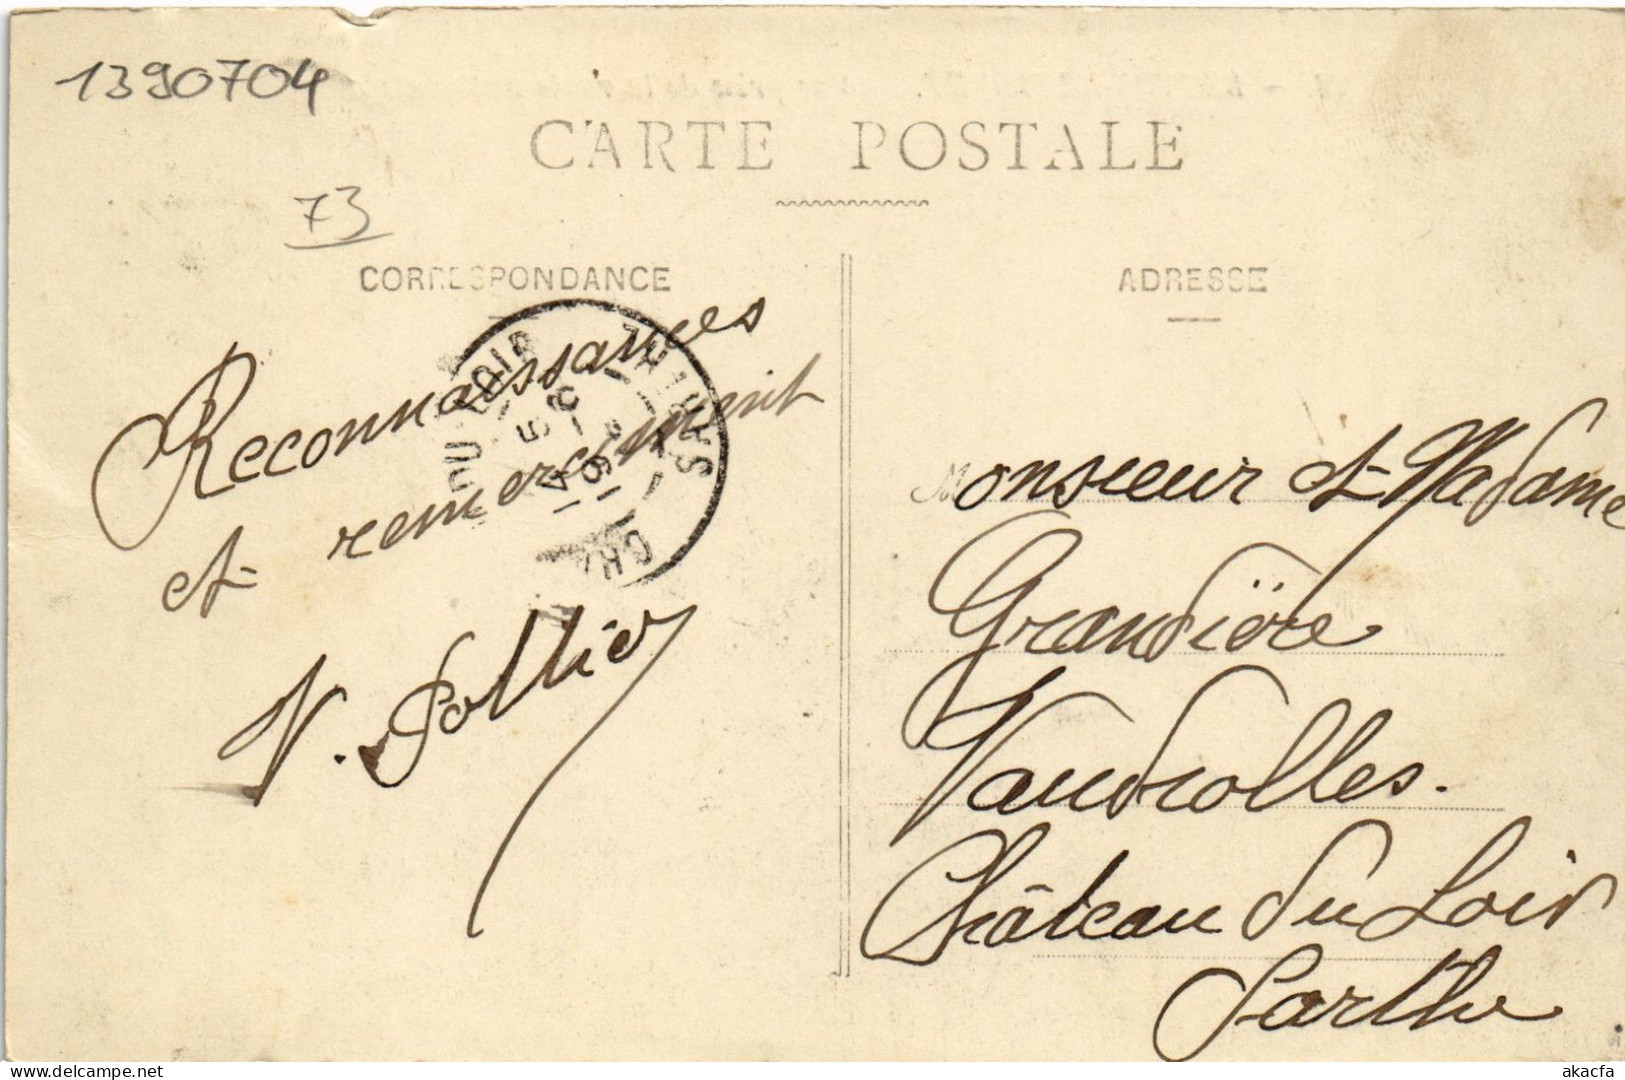 1390704
CARTE POSTALE
73
CORRESPONDANCE
ADRESSE
Reconnaissances
et remerciment
V. Pollier
DU LOIR
SARTHE
Monsieur et Madame
Grandière
Vaudrolles.
Château du Loir
Sarthe
akacfa